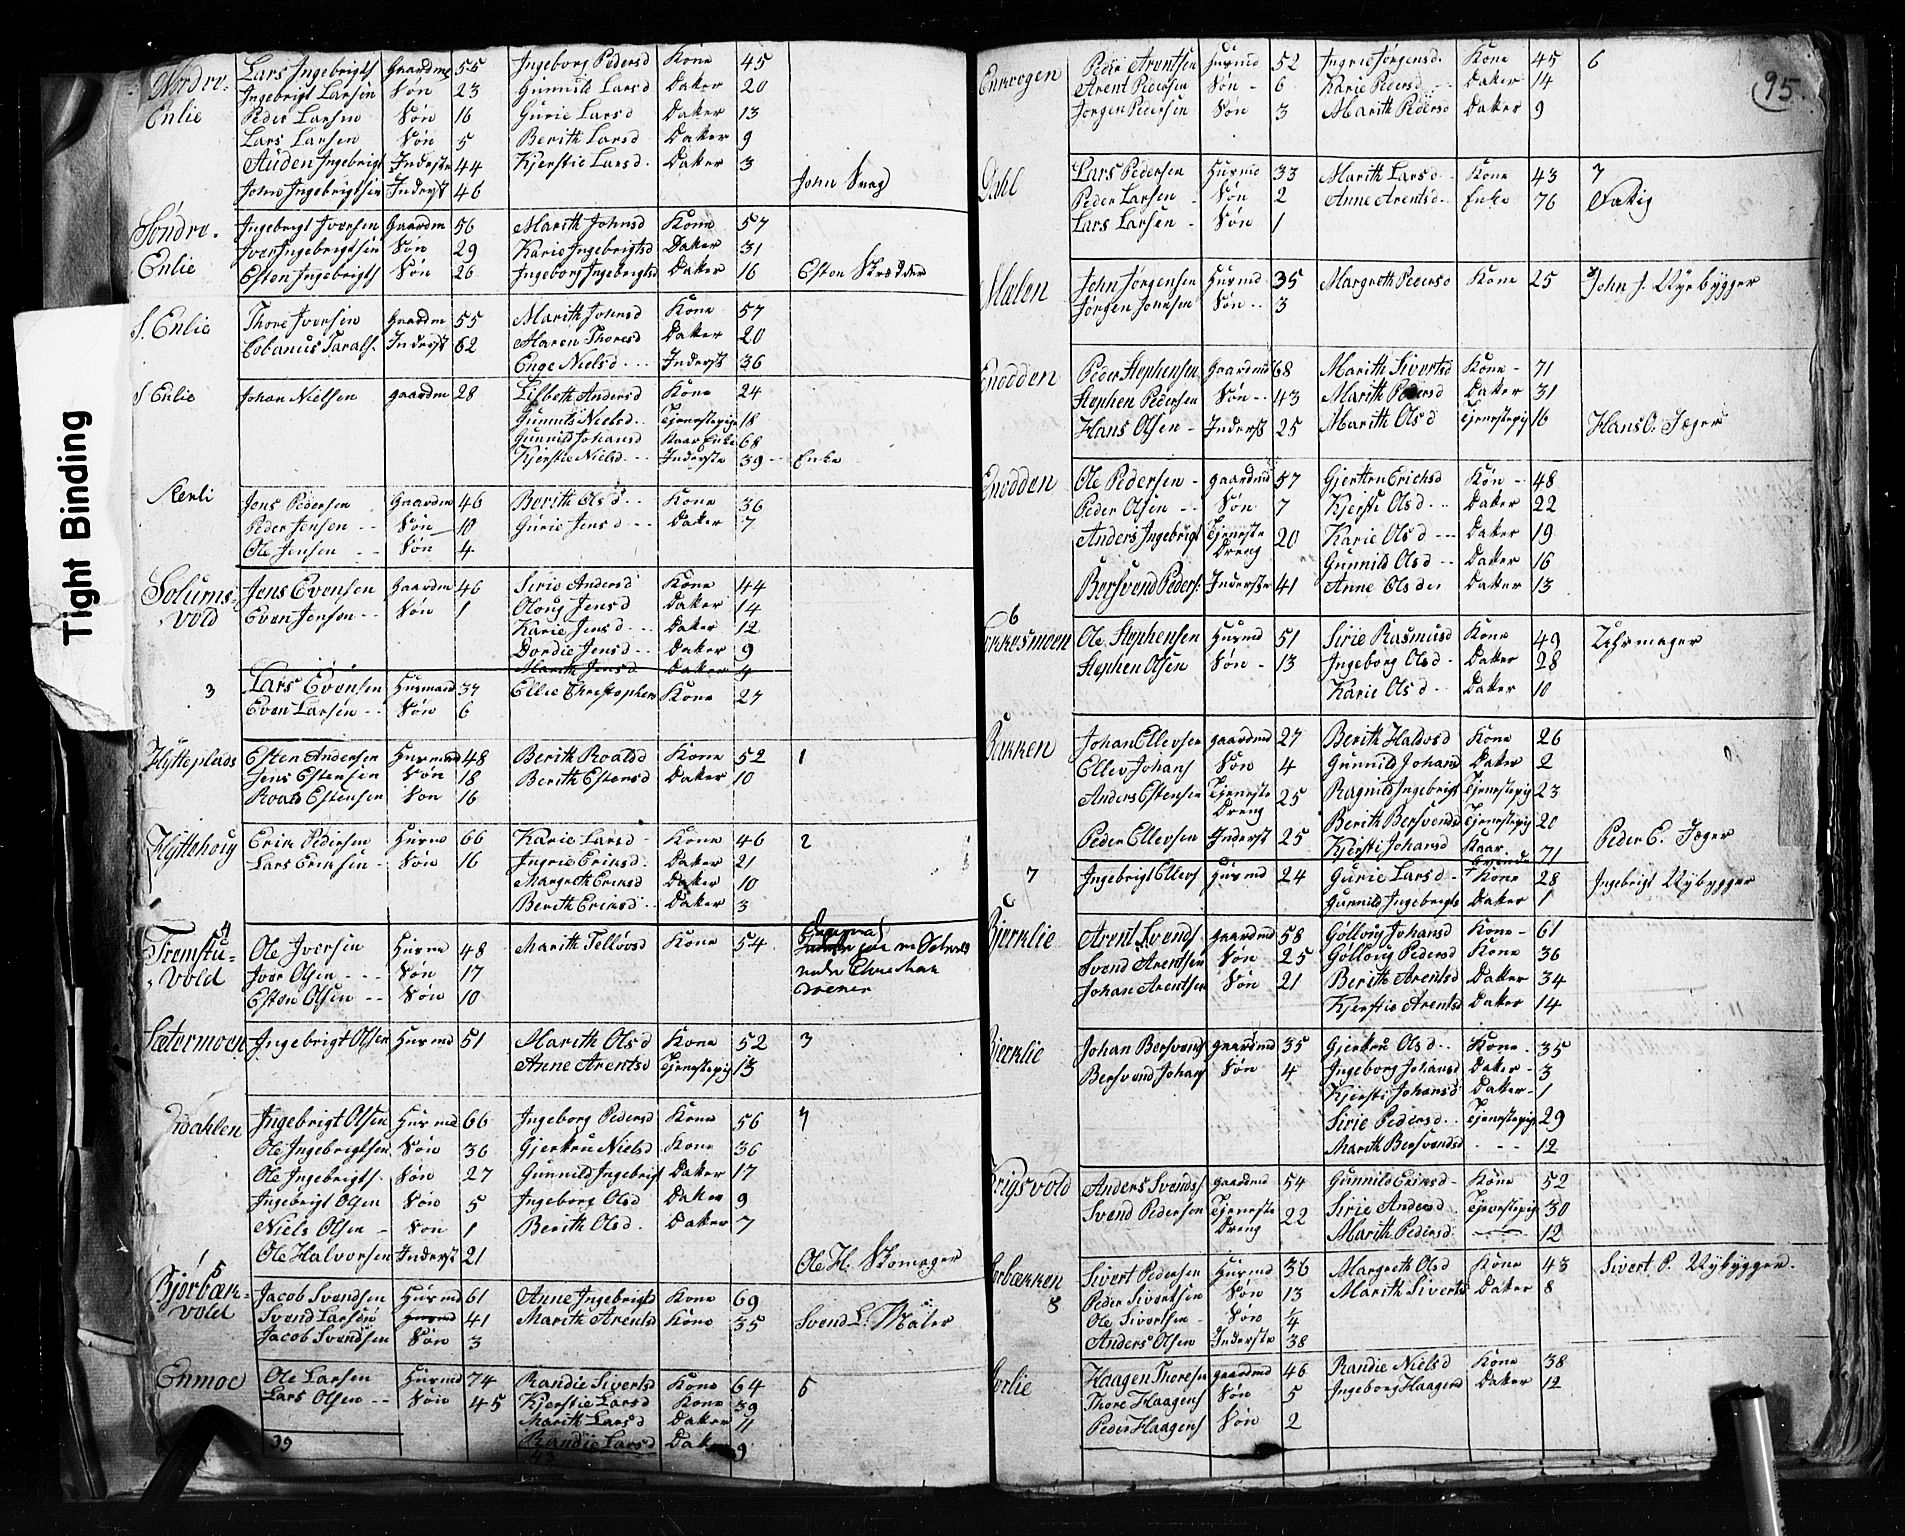 Tight Binding
Nordre- Lars Ingebrigts Gaardm 55 Ingeborg Pedersd Kone 45
Ingebrigt Larsen Søn 23 Gunnild Larsd Dotter 20
Enlie Peder Larsen Søn 16 Gurie Larsd Dotter 13
Lars Larsen Søn 5 Berith Larsd Dotter 9
Auden Ingebrigt Inderste 44 Kjerstie Larsd. Dotter 3
John Ingebrigtsen Inderst 46 John
Søndre- Ingebrigt Iversen Gaardm 56 Marith Johnsd Kone 57
Iver Ingebrigtsen Søn 29 Karie Ingebrigtsd Dotter 31
Enlie Esten Ingebrigts Søn 26 Ingeborg Ingebrigtsd Dotter 16 Esten Skrædder
S. Enlie Thore Iversen Gaardm 55 Marith Johnsd Kone 57
Inderst 62 Maren Thoresd Dotter 20
Enge Nielsd Inderst 36
S Enlie Johan Nielsen gaardm 28 Lisbeth Andersd Kone 24
Gunnild Nielsd Tjenestepige 18
Gunnild Johansd Kaar Enke 68
Kjerstie Nielsd Inderste 39 Enke
Aenli Jens Pedersen Gaardm 46 Berith Olsd Kone 36
Peder Jensen Søn 10 Gurie Jensd Dotter 7
Ole Jensen Søn 4
Solums- Jens Evensen Gaardm 46 Sirie Andersd Kone 44
vold Even Jensen Søn 1 Oloug Jensd Dotter 14
Karie Jensd Dotter 12
Dordie Jensd Dotter 9
Marith Jensd Dotter 4
3 Lars Evensen Husmand 37 Ellie Christophers Kone 27
Even Larsen Søn 6
Hytteplads Esten Andersen Husmand 48 Berith Roaldsd Kone 52 1
Jens Estensen Søn 18 Berith Estensd Dotter 10
Roald Estensen Søn 16
Hyttehoug Erik Pedersen Husm 66 Karie Larsd Kone 46 2
Lars Eriksen Søn 16 Ingrie Eriksd. Dotter 21
Margreth Eriksd Dotter 10
Berith Eriksd Dotter 3
4
Fremstu- Ole Iversen Husm 48 Marith Tellövsd Kone 54
vold Iver Olsen Søn 17
Esten Olsen Søn 10
Sætermoen Ingebrigt Olsen Husmd 51 Marith Olsd Kone 52 3
Anne Arentsd Tjenestepig 13
Ingebrigt Olsen Husmd 66 Ingeborg Pedersd Kone 56 4
Ole Ingebrigtsen Søn 36 Gjertru Nielsd Kone 36
Ole Ingebrigts Søn 27 Gunnild Ingebrigt Dotter 17
Ingebrigt Olsen Søn 5 Ingeborg Olsd Dotter 9
Niels Olsen Søn 1 Berith Olsd. Dotter 7
Ole Halvorsen Inderst 21 Ole H. Skomager
5
Bjørbæk- Jacob Svendsen Husmd 61 Anne Ingebrigtd Kone 69
vold Svend Larsen Husmd 41 Marith Arentsd Kone 35 Svend L. Maler
Jacob Svendsen Søn 3
Enmoe Ole Larsen Husmd 74 Randie Sivertsd Kone 64 5
Lars Olsen Søn 45 Kjerstie Larsd Kone 39
Marith Larsd Dotter 11
39 Randie Larsd 9
43
95.
Enkrogen Peder Arentsen Husmd 52 Ingrie Jørgensd. Kone 45 6
Arent Pedersen Søn 6 Karie Pedersd Dotter 14
Jørgen Pedersen Søn 3 Marith Pedersd Dotter 9
Dahl Lars Pedersen Husmd 33 Marith Larsd Kone 43 7
Peder Larsen Søn 2 Anne Arentsd. Enke 76 Fatig
Lars Larsen Søn 1
Malen John Jørgensen Husmd 35 Margreth Pedersd Kone 25 John J. Nyebygger
Jørgen Johnsen Søn 3
Enodden Peder Stephensen Gaardmd 68 Marith Sivertsd Kone 71
Stephen Pedersen Søn 43 Marith Pedersd Dotter 31
Hans Olsen Inderst 25 Marith Olsd Tjenestepig 16 Hans O. Jæger
Enodden Ole Pedersen gaardmd 57 Gjertru Erichsd Kone 48
Peder Olsen Søn 7 Kjersti Olsd Dotter 22
Anders Ingebrigt Tjeneste Dreng 20 Karie Olsd Dotter 19
Gunnild Olsd Dotter 16
Bersvend Peders: Inderste 41 Anne Olsder Dotter 13
6
Ekkesmoen Ole Stephensen Husmd 51 Sirie Rasmusd Kone 49 Uhrmager
Stephen Olsen Søn 13 Ingeborg Olsd Dotter 28
Karie Olsd Dotter 10
Bakken Johan Ellevsen gaardmd 27 Berith Halvosd Kone 26
Ellev Johans Søn 4 Gunnild Johansd Dotter 2
Anders Estensen Tjeneste Dreng 25 Ragnild Ingebrigt Tjenestepig 23
Berith Bersvends Tjenestepig 20
Peder Ellevsen Inderst 25 Kjersti Johansd Kaar 71 Peder E. Jæger
7 Ingebrigt Ellevs Husmd 24 Gurie Larsd Kone 28 Ingebrigt Nybygger
Gunnild Ingebrigts Dotter 1
Bjerklie Arent Svends gaardmd 58 Gølloug Johansd Kone 61
Svend Arentsen Søn 25 Gølloug Pedersd Kone 36
Johan Arentsen Søn 21 Berith Arentsd Dotter 34
Kjerstie Arentsd Dotter 14
Bjerklie Johan Bersvends gaardmd 35 Gjertru Olsd Kone 35
Bersvend Johans Søn 4 Ingeborg Johansd Dotter 3
Kjersti Johansd Dotter 1
Sirie Pedersd Tjenestepig 29
Marith Bersvendsd 12
Krigsvold Anders Svends gaardmd 54 Gunnild Eriksd Kone 52
Svend Pedersen Tjeneste Dreng 22 Sirie Andersd Tjenestepig 30
Marith Pedersd 12
Sivert Pedersen Husmd 36 Margreth Olsd Kone 43 Sivert P. Nybygger.
8 Peder Sivertsen Søn 13 Marith Sivertsd Dotter 8
Ole Sivertsen Søn 1/4
Anders Olsen Inderste 38
Haagen Thoresen gaardmd 46 Randie Nielsd Kone 38
Thore Haagens Søn 5 Ingeborg Haagensd Dotter 12
Peder Haagens Søn 2